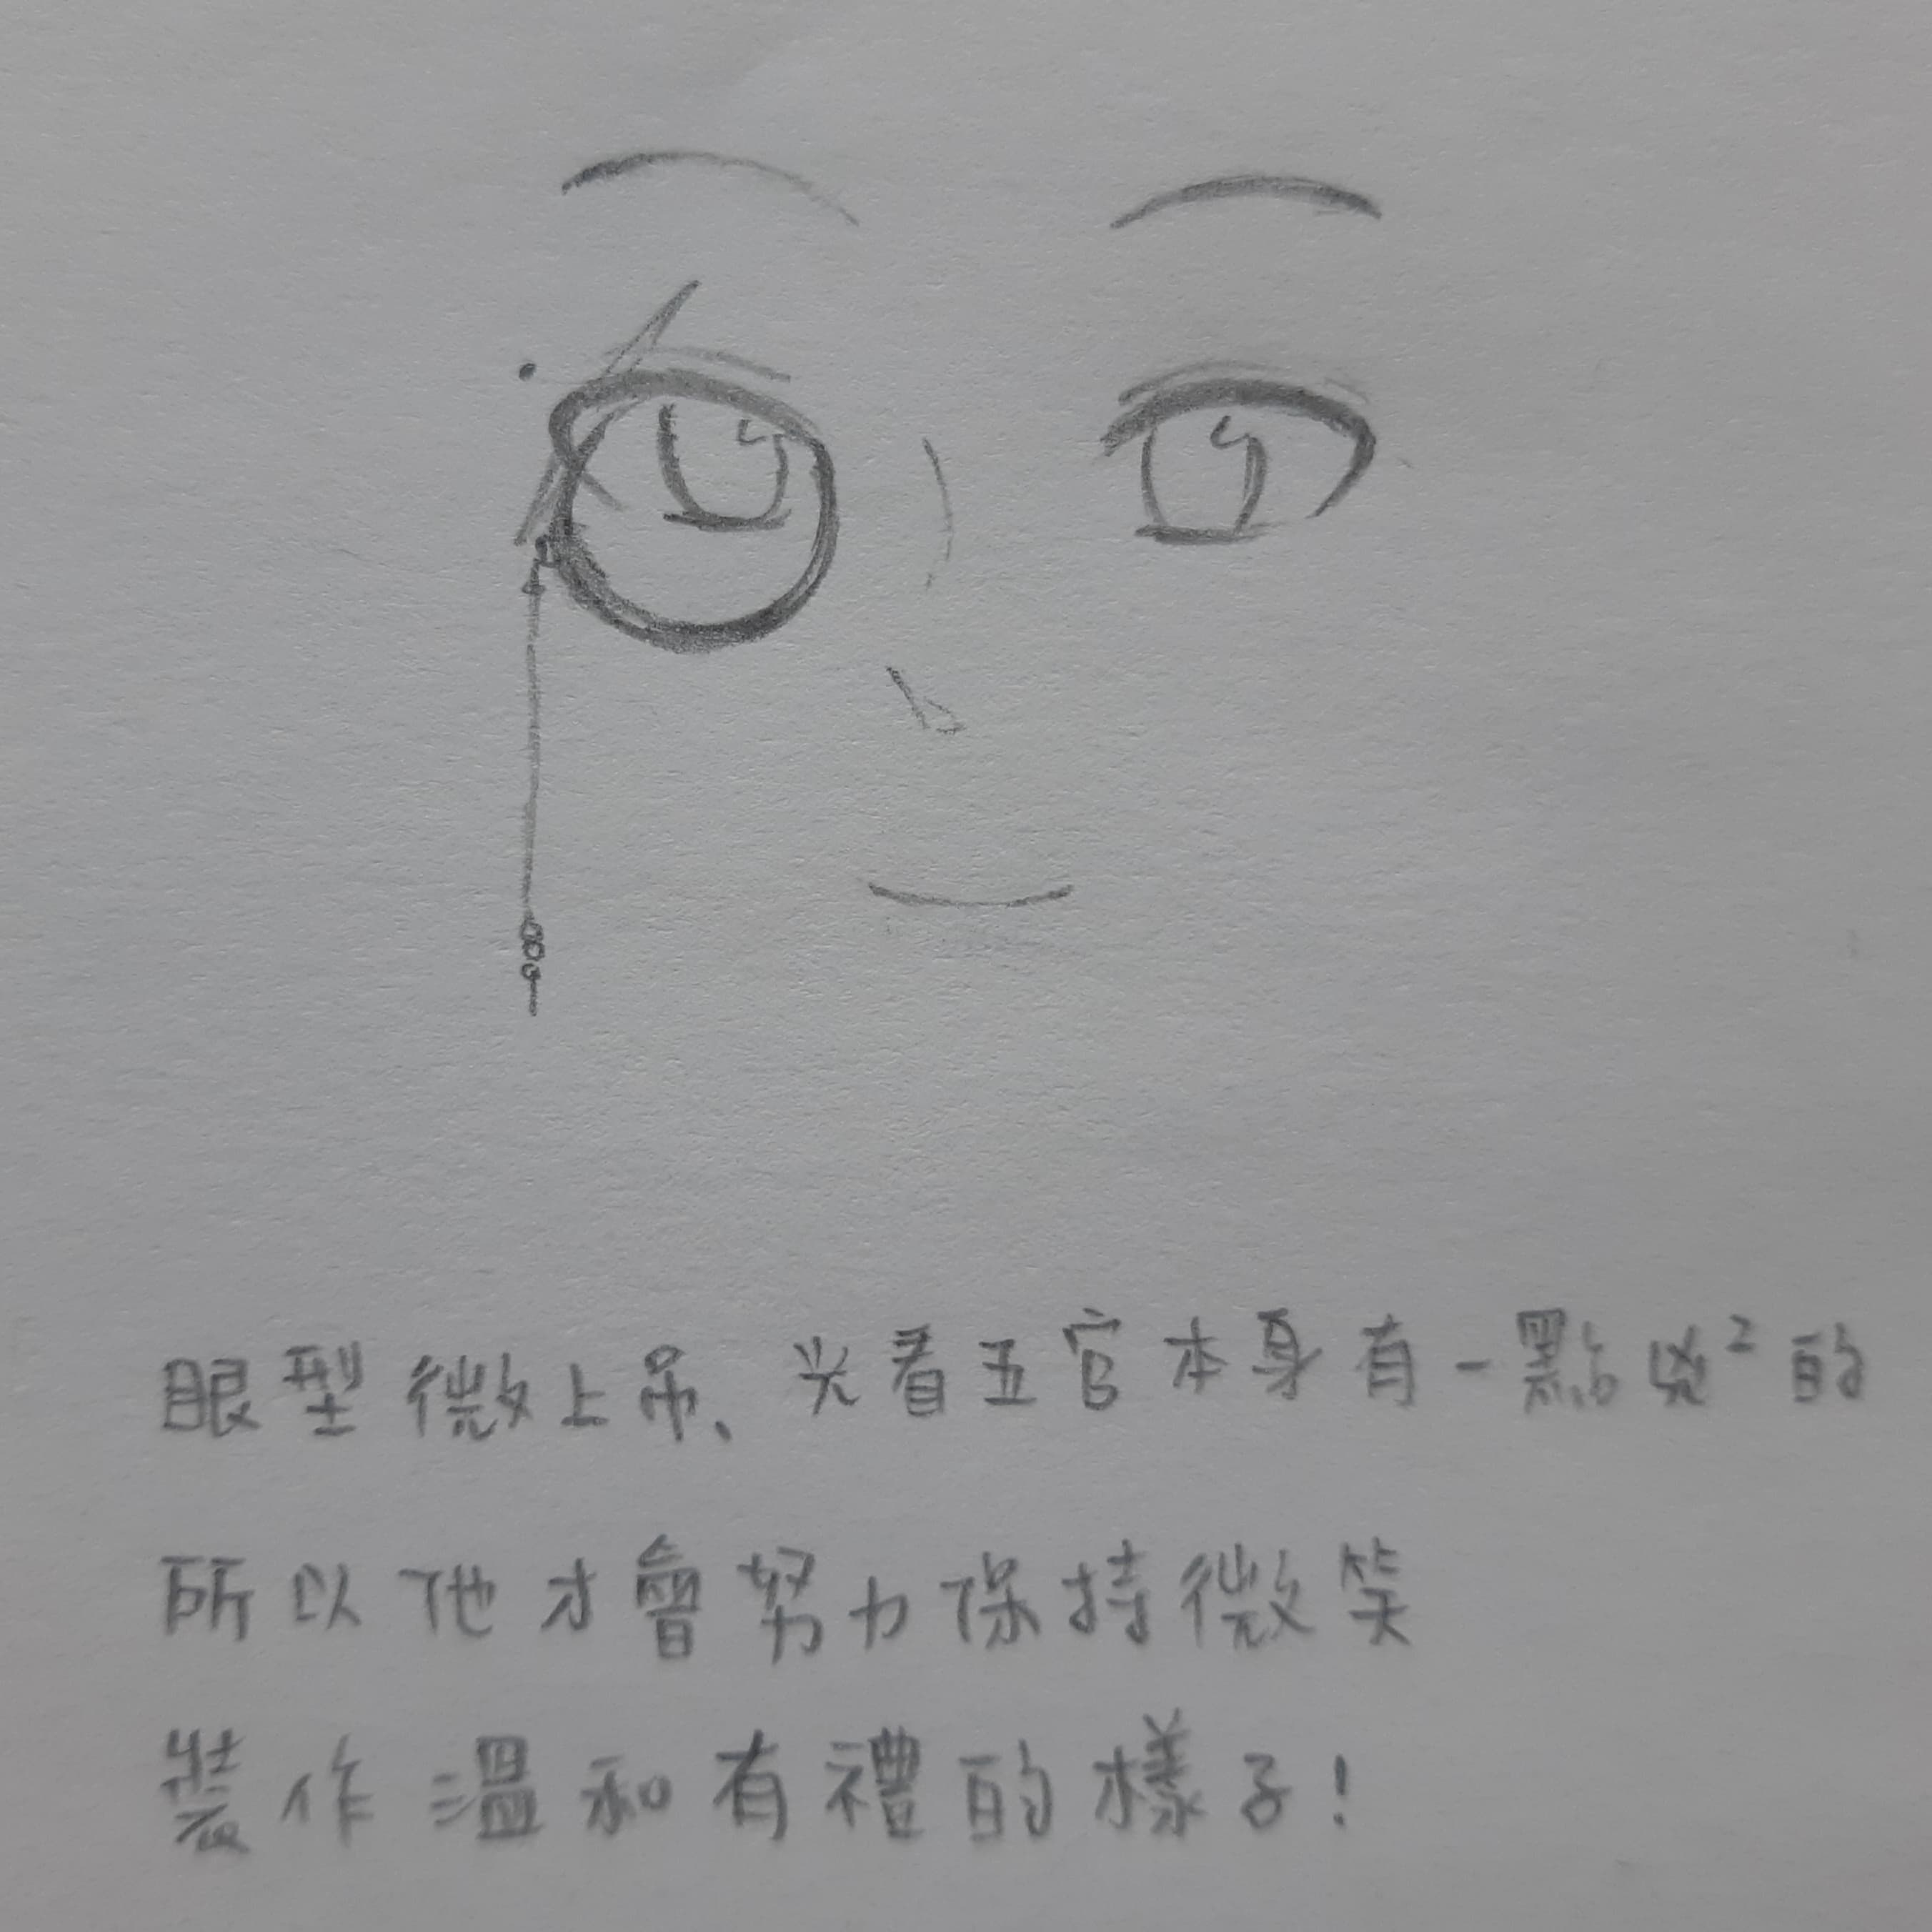 眼型微上吊、光看五官本身有一點兇²的
所以他才會努力保持微笑
裝作溫和有禮的樣子!